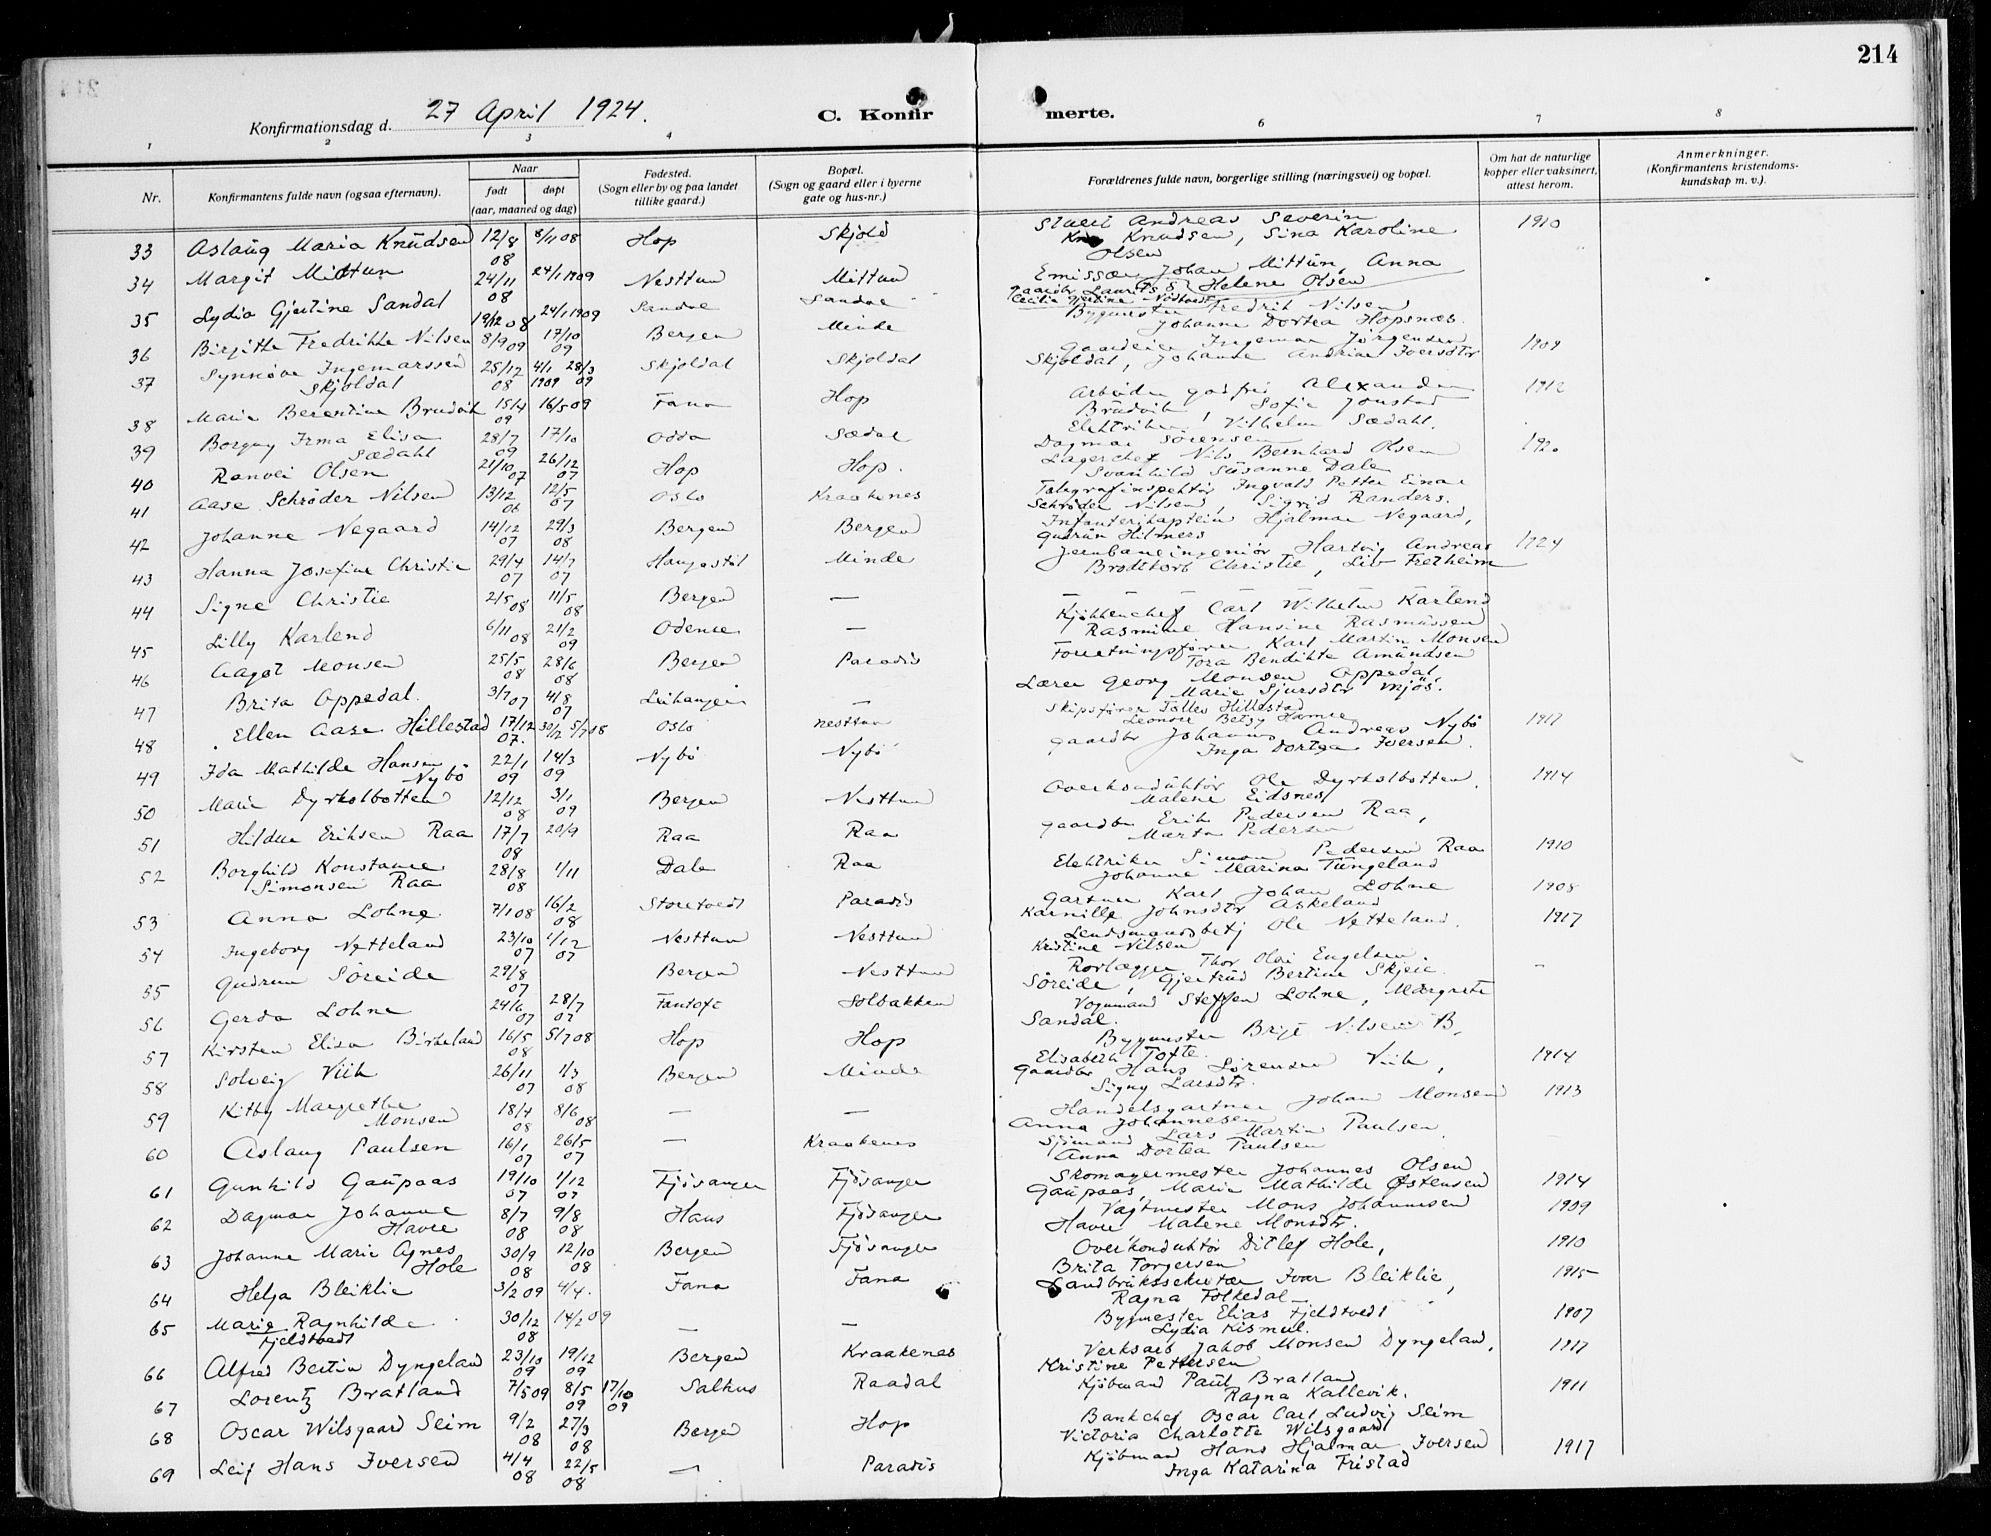 214
Konfirmationsdag d. 27 April 1924.
C. Konfir merte.
1 2 3 4 6 7 8
Nr.
Konfirmantens fulde navn (ogsaa efternavn).
Naar
født døpt
(aar, maaned og dag)
Fødested.
(Sogn eller by og paa landet
tillike gaard.)
Bopæl.
(Sogn og gaard eller i byerne
gate og hus-nr.)
Forældrenes fulde navn, borgerlige stilling (næringsvei) og bopæl.
Om hat de naturlige
kopper eller vaksinert,
attest herom.
Anmerkninger.
(Konfirmantens kristendoms-
kundskap m. v.).
33 Aslaug Maria Knudsen 12/8 08 8/11 08 Hop Skjold Andreas Severin Knudsen, Sina Karoline Olsen 1910
34 Margit Mittun 24/11 08 24/1 1909 Nesttun Mittun Emissær Johan Mittun, Anna Helene Olsen
35 Lydia Gjertine Sandal 19/12 08 24/1 1909 Sandal Sandal Gaardbr Laurits S Cecilia Gjertine Nødtvedt
36 Birgitte Fredrikke Nilsen 8/9 09 17/10 09 Bergen Minde Bygmester Fredrik Nilsen Johanne Dortea Hopsnæs.
37 Synnøve Ingemarssen Skjoldal 25/12 08 4/1 1909 28/3 09 Skjoldal Skjoldal Gaardeier Ingemar Jørgensen Skjoldal, Johanne Andrine Iversdtr 1909
38 Marie Berentine Brudvik 15/4 09 16/5 09 Fana Hop Arbeider Godfrei Alexander Brudvik, Sofie Jonstad 1912
39 Borgny Irma Elisa Sædahl 28/7 09 17/10 Odda Sædal Elektriker Vilhelm Sædahl. Dagmar Sørensen
40 Ranvei Olsen 21/10 07 26/12 07 Hop Hop. Lagerchef Nils Bernhard Olsen Svanhild Susanne Dale 1920
41 Aase Schrøder Nilsen 13/12 06 12/5 07 Oslo Kraakenes Telegrafinspektør Ingvald Petter Einar Schrøder Nilsen, Sigrid Randers.
42 Johanne Negaard 14/12 07 29/3 08 Bergen Bergen Infanterikaptein Hjalmar Negaard, Gudrun Hilmers
43 Hanna Josefine Christie 29/4 07 14/7 07 Haugastøl Minde Jernbaneingeniør Hartvig Andreas Brodtkorb Christie, Liv Fretheim 1924
44 Signe Christie 2/5 08 11/5 08 Bergen — — — — —
45 Lilly Karlend 6/11 08 21/2 09 Odense — Kjøkkenchef Carl Wilhelm Karlend Rasmine Hansine Rasmussen
46 Aagot Monsen 25/5 08 28/6 08 Bergen Paradis Forretningsfører Karl Martin Monsen Tora Bendikte Amundsen
47 Brita Oppedal. 3/7 07 4/8 07 Leikanger — Lærer Georg Monsen Oppedal, Marie Sjursdtr Mjös.
48 Ellen Aase Hillestad 17/12 07. 30/12 5/7 08 Oslo Nesttun Skipsfører Tolles Hillestad Leonore Betsy Hamre
49 Ida Mathilde Hansen Nybö 22/1 09 14/3 09 Nybö Nybö Gaardbr Johannes Andreas Nybö Inga Dortea Iversen. 1917
50 Marie Dyrkolbotten 12/12 08 3/1 09 Bergen Nesttun Overkonduktör Ole Dyrkolbotten. Malene Eidsnes 1914
51 Hildur Eriksen Raa 17/7 08 20/9 Raa Raa Gaardbr Erik Pedersen Raa, Marta Pedersen
52 Borghild Konstanse Simonsen Raa 28/8 08 1/11 Dale Raa Elektriker Simon Pedersen Raa Johanne Marina Tungeland 1910
53 Anna Lohne 7/1 08 16/2 08 Storetvedt Paradis Gartner Karl Johan Lohne Karnille Johnsdtr Askeland 1908
54 Ingeborg Netteland 23/10 07 1/12 07 Nesttun Nesttun Lensmandsbetj Ole Netteland. Kristine Nilsen 1917
55 Gudrun Söreide 29/8 07 Bergen Nesttun Rørlægger Thor Olai Engelsen Söreide, Gjertrud Bertine Skjeie. –
56 Gerda Lohne 24/6 07 28/7 07 Fantoft Solbakken Vognmand Steffen Lohne, Margrete Sandal.
57 Kirsten Elisa Birkeland 16/5 08 5/7 08 Hop Hop Bygmester Brigt Nilsen B. Elisabeth Tofte.
58 Solveig Viik 26/11 07 1/3 08 Bergen Minde Gaardbr Hans Sørensen Viik, Signy Larsdtr. 1914
59 Kitty Margrethe Monsen 18/4 08 8/6 08 — — Handelsgartner Johan Monsen Anna Johannesen 1913
60 Aslaug Paulsen 16/1 07 26/5 07 — Kraakenes Sjömand Lars Martin Paulsen. Anna Dortea Paulsen
61 Gunhild Gaupaas 19/10 07 1/12 07 Fjösanger Fjösanger Skomagermester Johannes Olsen Gaupaas, Marie Mathilde Østensen 1914
62 Dagmar Johanne Havre 8/7 08 9/8 08 Haus Fjösanger Vagtmester Mons Johannesen Havre Malene Monsdtr. 1909
63 Johanne Marie Agnes Hole 30/9 08 12/10 08 Bergen Fjösanger Overkonduktör Ditlef Hole, Brita Torgersen 1910
64 Helga Bleiklie 3/2 09 4/4. Fana Fana Landbrukssekretær Ivar Bleiklie, Ragna Folkedal 1915
65 Marie Ragnhild Fjeldtvedt 30/12 08 14/2 09 — — Bygmester Elias Fjeldtvedt Lydia Kismul. 1907
66 Alfred Bertin Dyngeland 23/10 09 19/12 09 Bergen Kraakenes Verksarb Jakob Monsen Dyngeland, Kristine Pettersen 1917
67 Lorentz Bratland 7/5 09 8/5 09 17/10 09 Salhus Raadal Kjöbmand Paul Bratland Ragna Kallevik. 1911
68 Oscar Wilsgaard Seim 9/2 08 27/3 08 Bergen Hop Bankchef Oscar Carl Ludvig Seim Victoria Charlotte Wilsgaard
69 Leif Hans Iversen 4/4 08 22/5 08 — Paradis Kjöbmand Hans Hjalmar Iversen Inga Katarina Fristad 1917